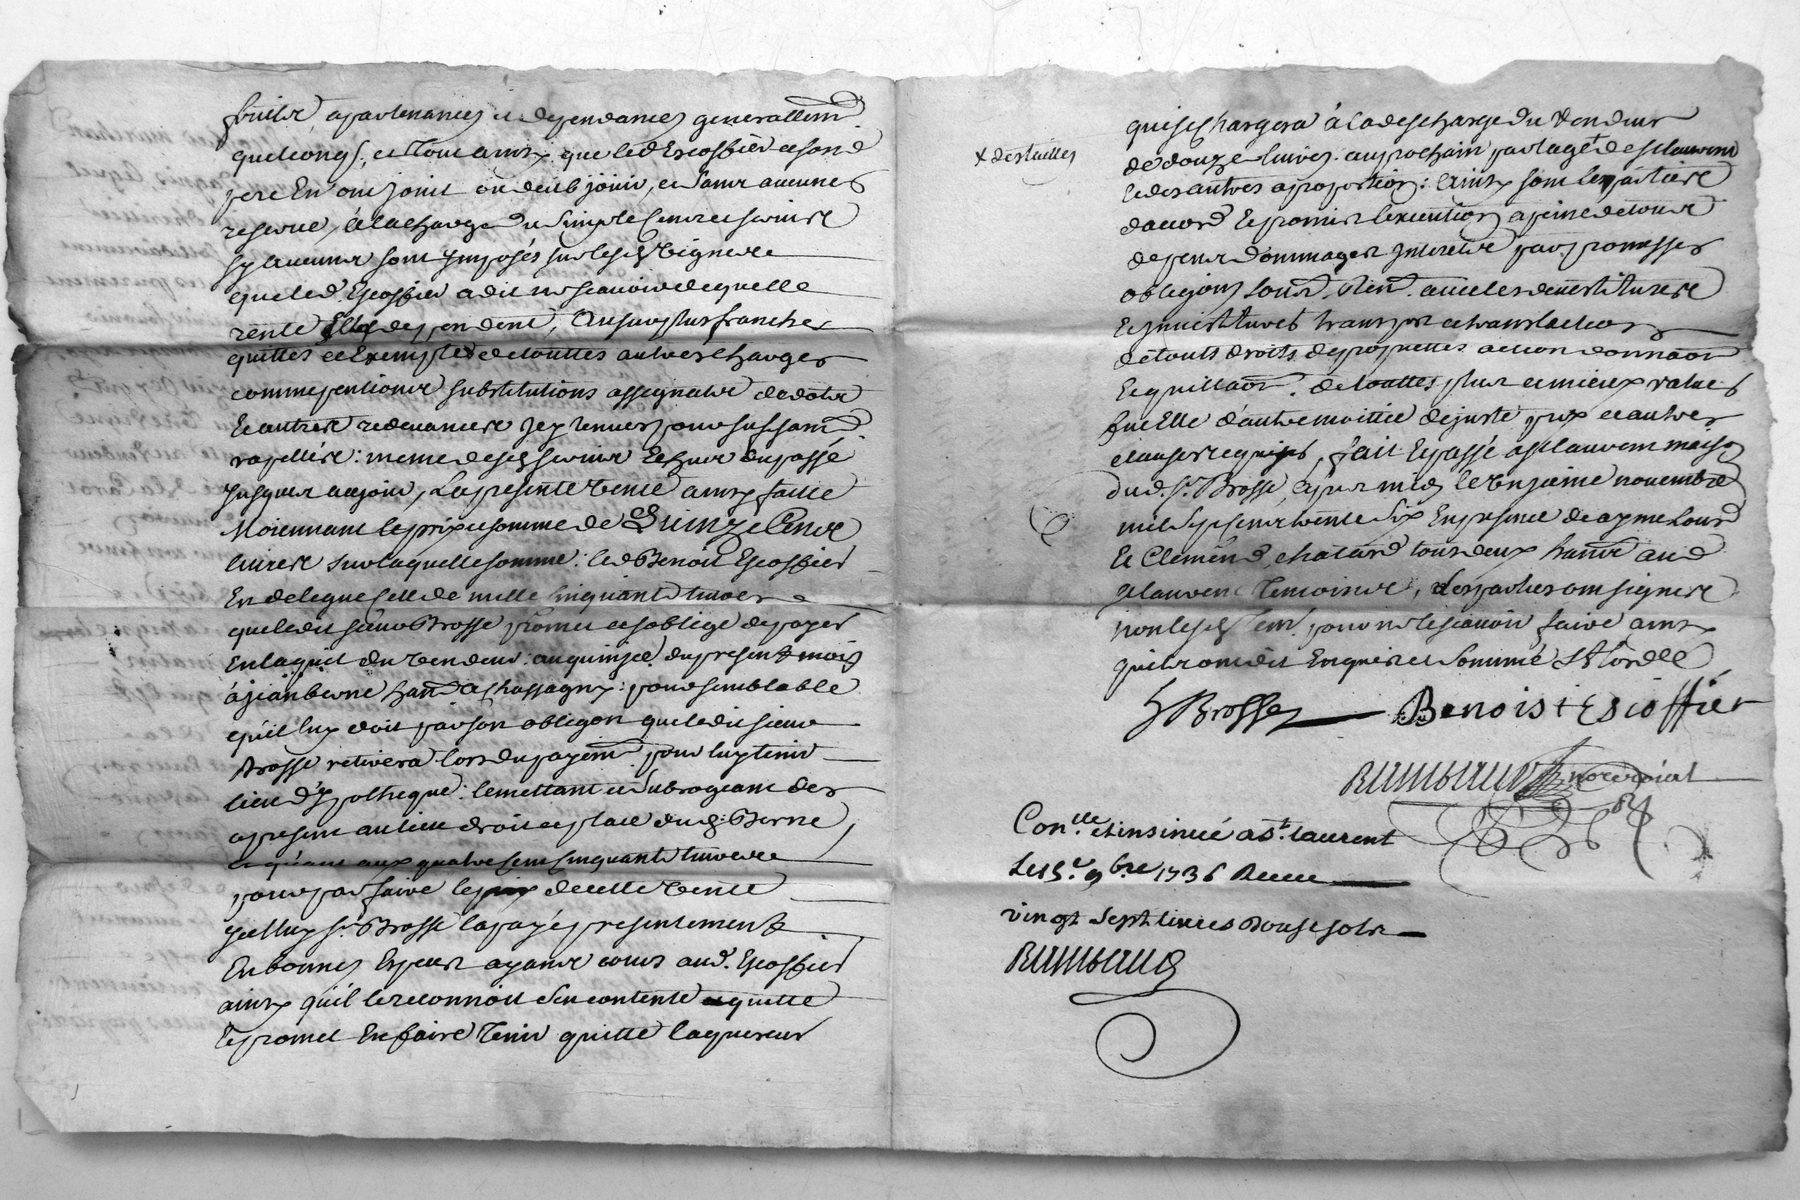 fruits apartenances et dependances generallem.t
quelconq.s, et tout ainsy que led Escoffier et son d
pere en ont joüit ou deub joüir, et sans aucunes
reserve, a la charge du simple cens et servis
sy aucuns sont imposés sur lesd vignes
que led. Escoffier a dit ne scavoir de quelle
rente elles dependent, au surplus franches
quittes et exemptes de touttes autres charges
comme pentions substitutions assignats de dots
et autres redevances icy tenues pour suffisam.t
rapellés: meme desd servis et cens du passé
jusques aujour, La presente vente ainsy faite
Moiennant le prix et somme de Quinze Cent
livres sur laquelle somme: led Benoit Escoffier
en delegue celle de mille cinquante livres
que ledit sieur Brosse promet et s'oblige de payer
en laquit du vendeur: au quinze du present mois
à jean berne hant a Chassagny: pour semblable
qu'il luy doit par son obligon que ledit sieur
Brosse retirera lors du payem.t pour luy tenir
lieu d'ypotheque: le mettant et subrogeant des
apresent au lieu droit et place dud. Berne,
et quant aux quatre cent cinquante livres
pour parfaire le prix de cette vente
icelluy s.r Brosse la payé presentement
en bonnes especes ayants cours aud. Escoffier
ainsy qu'il le reconnoit s'en contente et quitte
et promet en faire tenir quitte laquereur
qui se chargera à la descharge du vendeur
x des tailles
de douze livres au prochain partage de st laurent
et des autres a proportion: ainsy sont les parties
d'accord et promis l'execution a peine de tous
depens dommages interets par promesses
obligons soum.s ren.s avec les devestitures
et investitures transport et translation
de touts droits de proprietté action donnaon
et quittaon de touttes plus et mieux values
fut elle d'autre moitiée de juste prix et autres
clauses requises, fait et passé a st laurent maison
dud. s.r Brosse, apres midy le onzieme novembre
mil sept cent trente six en presence de ayme
et Clement chatard tous deux hants aud
st laurent temoins, les parties ont signé
non lesd tem.s pour ne scavoir faire ainsy
qu'ils ont dit enquis et sommé
Brosse Benoist Escoffier
Rambaud no.re royal
Con.lle et insinué a S.t laurent
Le 15.e 9bre 1736 Receu
vingt sept livres douse sols
Rambaud